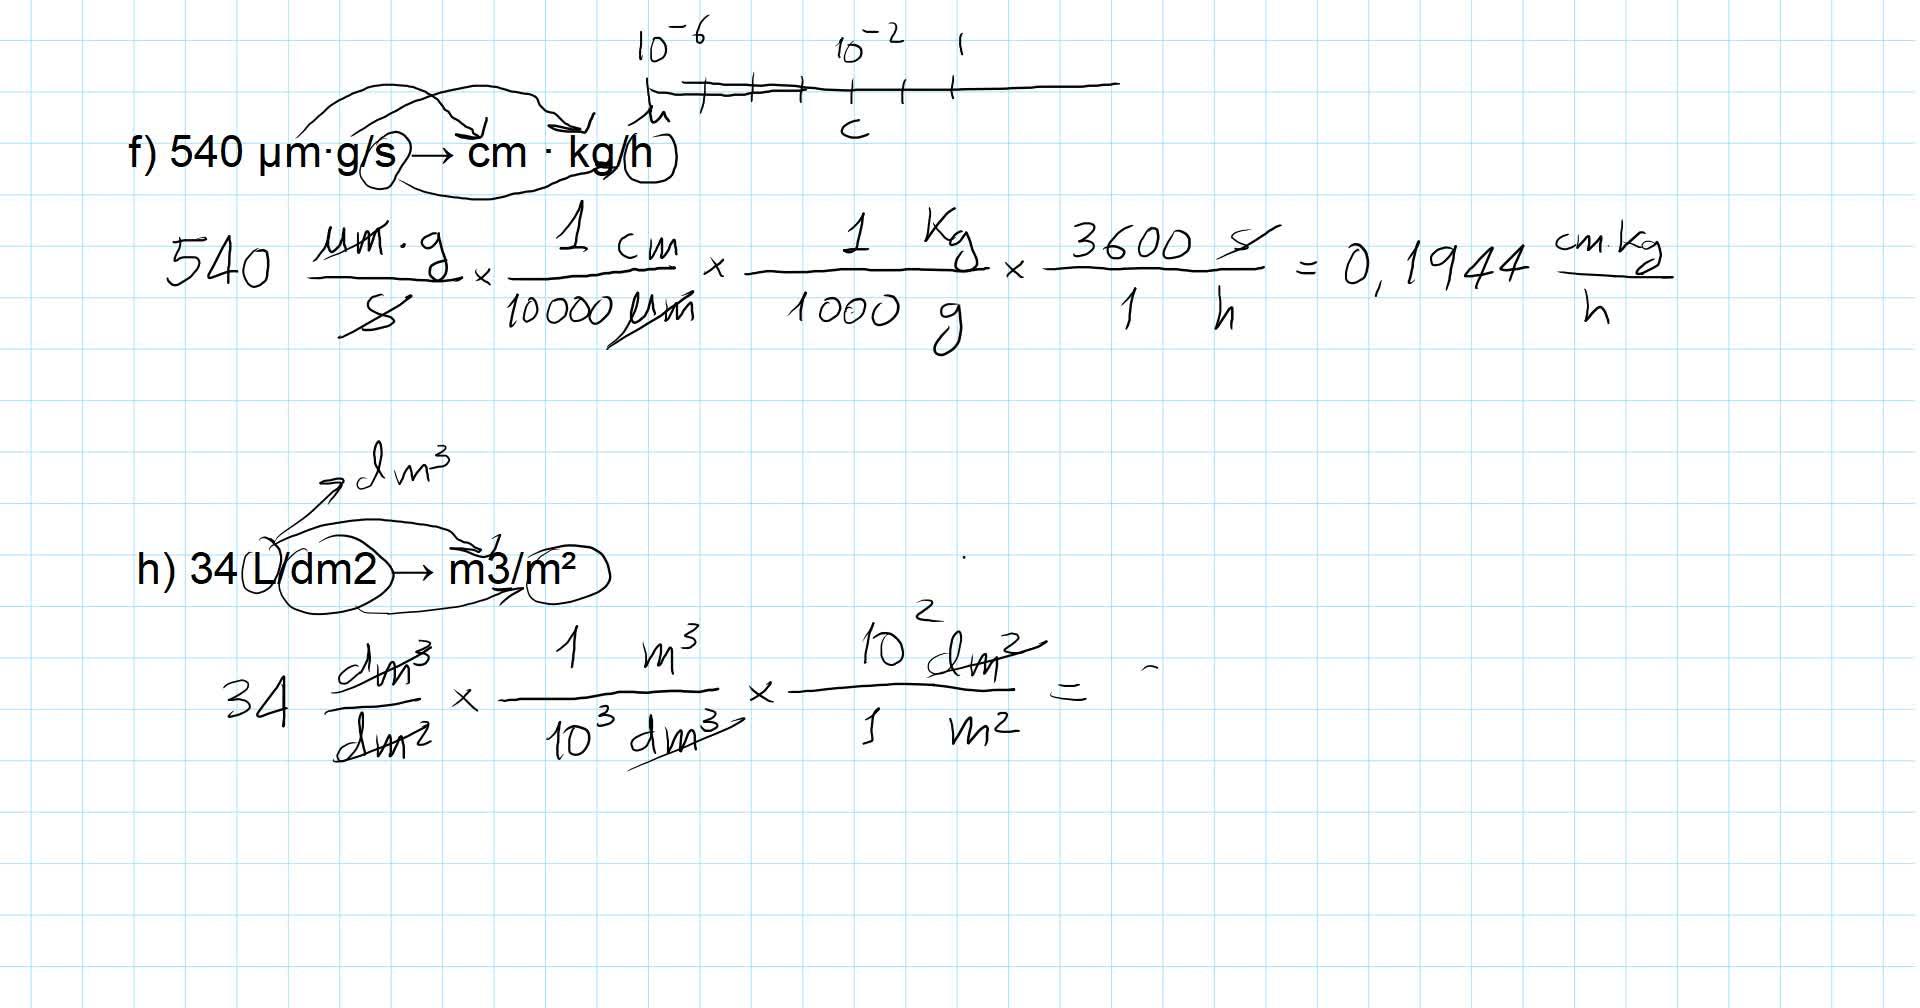 10⁻⁶ 10⁻² 1
μ c
f) 540 μm·g/s → cm · kg/h
540 μm·g/s × 1 cm/10000 μm × 1 Kg/1000 g × 3600 s/1 h = 0,1944 cm·kg/h
dm³
h) 34 L/dm2 → m3/m²
34 dm³/dm² × 1 m³/10³ dm³ × 10² dm²/1 m² =